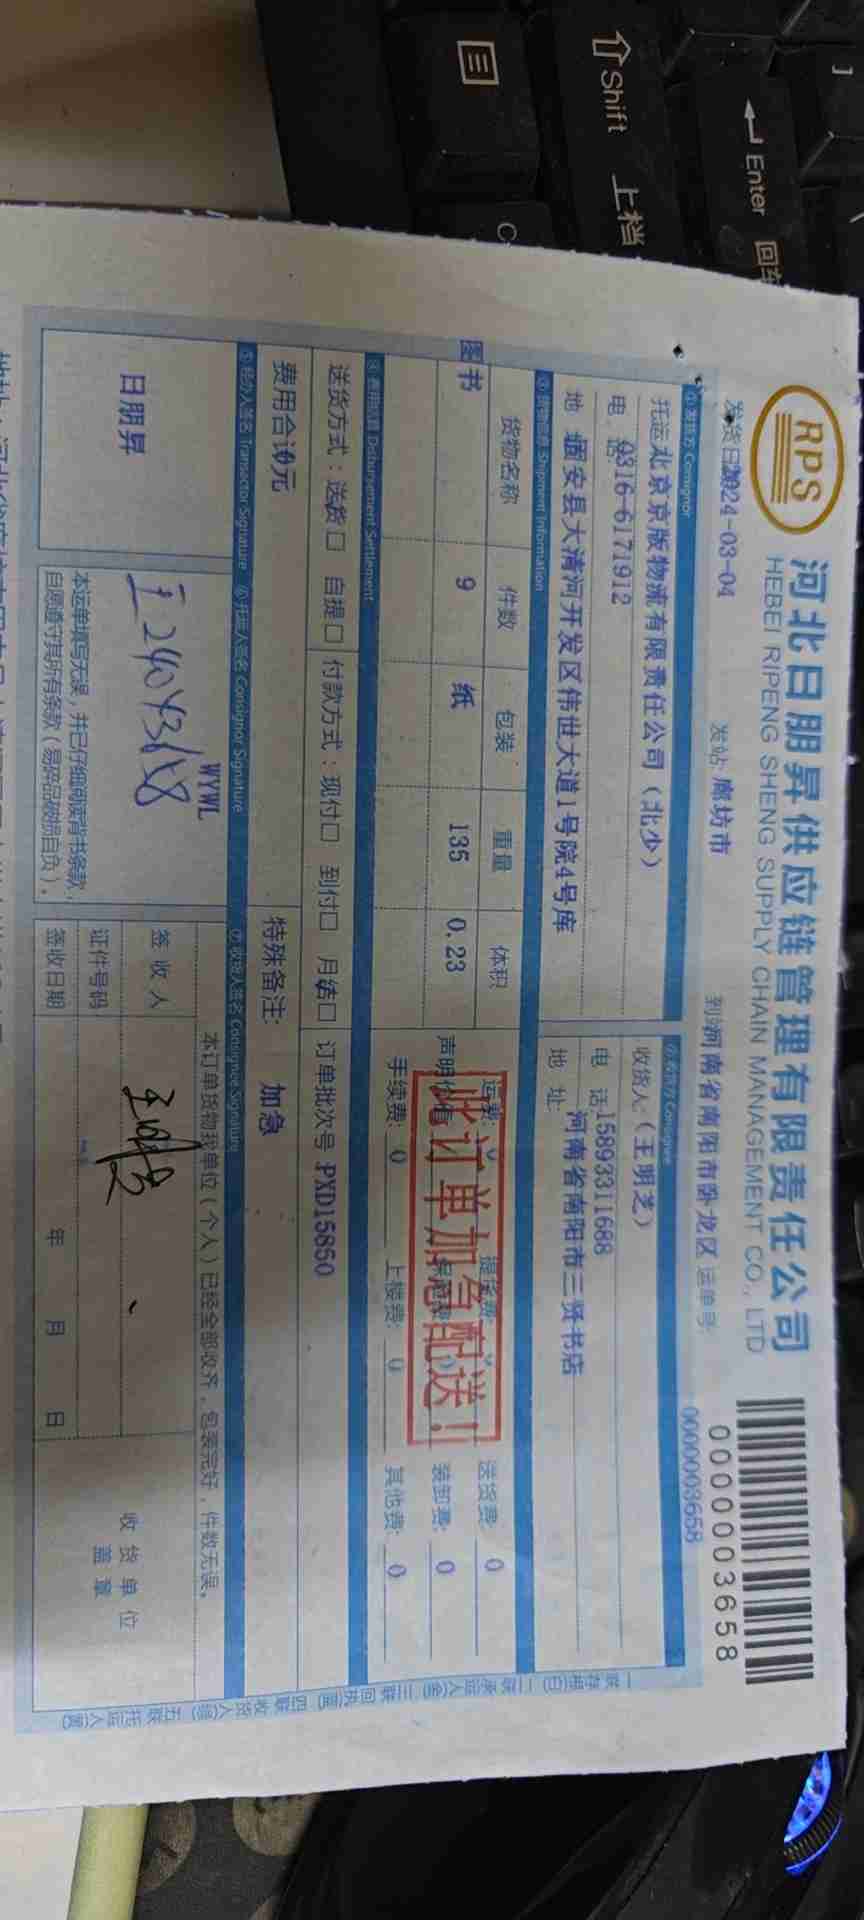 Shift 上档
Enter 回车
RPS
河北日朋昇供应链管理有限责任公司
HEBEI RIPENG SHENG SUPPLY CHAIN MANAGEMENT CO., LTD
0000003658
发货日2024-03-04
发站:廊坊市
到河南省南阳市卧龙区
运单号:
0000003658
① 发货方 Consignor
托运北京京版物流有限责任公司(北少)
电 话0316-6171912
地 固安县大清河开发区伟世大道1号院4号库
Consignee
收货人:(王明芝)
电 话15893311688
地 址:河南省南阳市三贤书店
③ 货物信息 Shipment Information
货物名称 件数 包装 重量 体积
图书 9 纸 135 0.23
运费: 提货费: 送货费: 0
声明价值 装卸费: 0
手续费: 0 上楼费: 0 其他费: 0
此订单加急配送!
④ 费用结算 Disbursement Settlement
送货方式:送货□ 自提□
付款方式:现付□ 到付□ 月结□
订单批次号 PXD15850
费用合计0元
特殊备注: 加急
⑤ 经办人签名 Transactor Signature
⑥ 托运人签名 Consignor Signature
⑦ 收货人签名 Consignee Signature
日朋昇
WYWL
本运单填写无误,并已仔细阅读背书条款,
自愿遵守其所有条款(易碎品破损自负)。
本订单货物我单位(个人)已经全部收齐,包装完好,件数无误。
签 收 人
证件号码
签收日期
年 月 日
收 货 单 位
盖 章